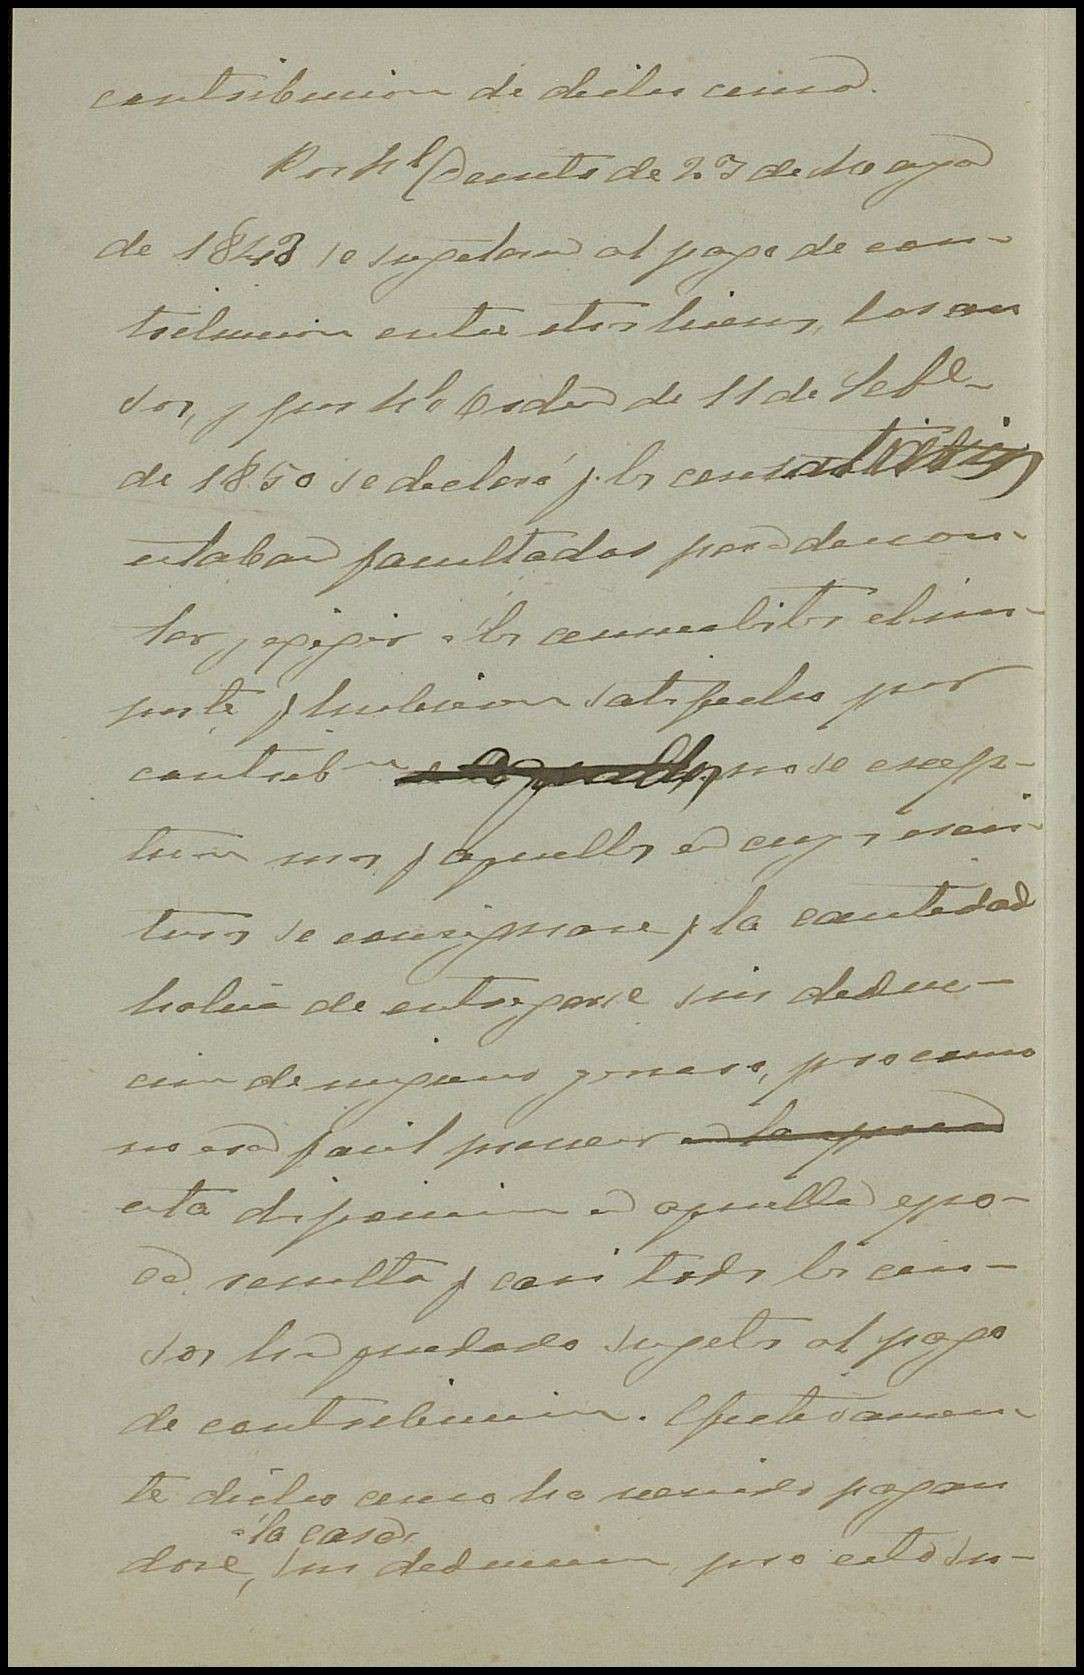 contribucion de dicho censo.
Por Rl Decreto de 23 de Mayo
de 1843 se sugetaron al pago de con-
tribucion entre otros bienes, los cen
sos, y por Rl Orden de 11 de Sebe-
de 1850 se declaró q. los censatarios
estaban facultados para descon-
tar y exigir a los censualistas el im-
porte q hubiesen satisfecho por
contribn no se escep-
tuan mas q aquellos en cuyas escri-
turas se consignase q la cantidad
habia de entregarse sin deduc-
cion de ningun genero, pero como
no era facil preveer en la epoca
esta disposicion en aquella epo-
ca resulta q casi todos los cen-
sos han quedado sugetos al pago
de contribucion. Efectivamen-
te dicho censo ha venido pagan
a la casa
dose, sin deduccion, pero esto su-